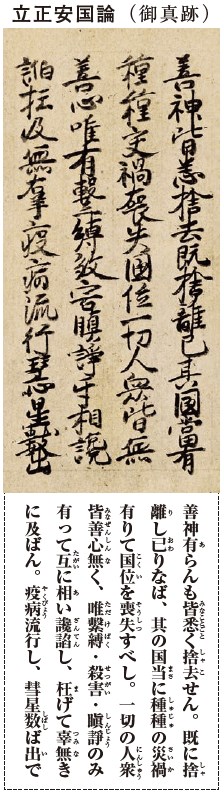 立正安国論（御真跡）
善神皆悉捨去既捨離已其國當有
種種灾禍喪失國位一切人衆皆無
善心唯有繫縛殺害瞋諍互相讒
諂枉及無辜疫病流行彗星數出
善神有らんも皆悉く捨去せん。既に捨
離し已りなば、其の国当に種種の災禍
有りて国位を喪失すべし。一切の人衆
皆善心無く、唯繫縛・殺害・瞋諍のみ
有って互に相い讒諂し、枉げて辜無き
に及ばん。疫病流行し、彗星数ば出で